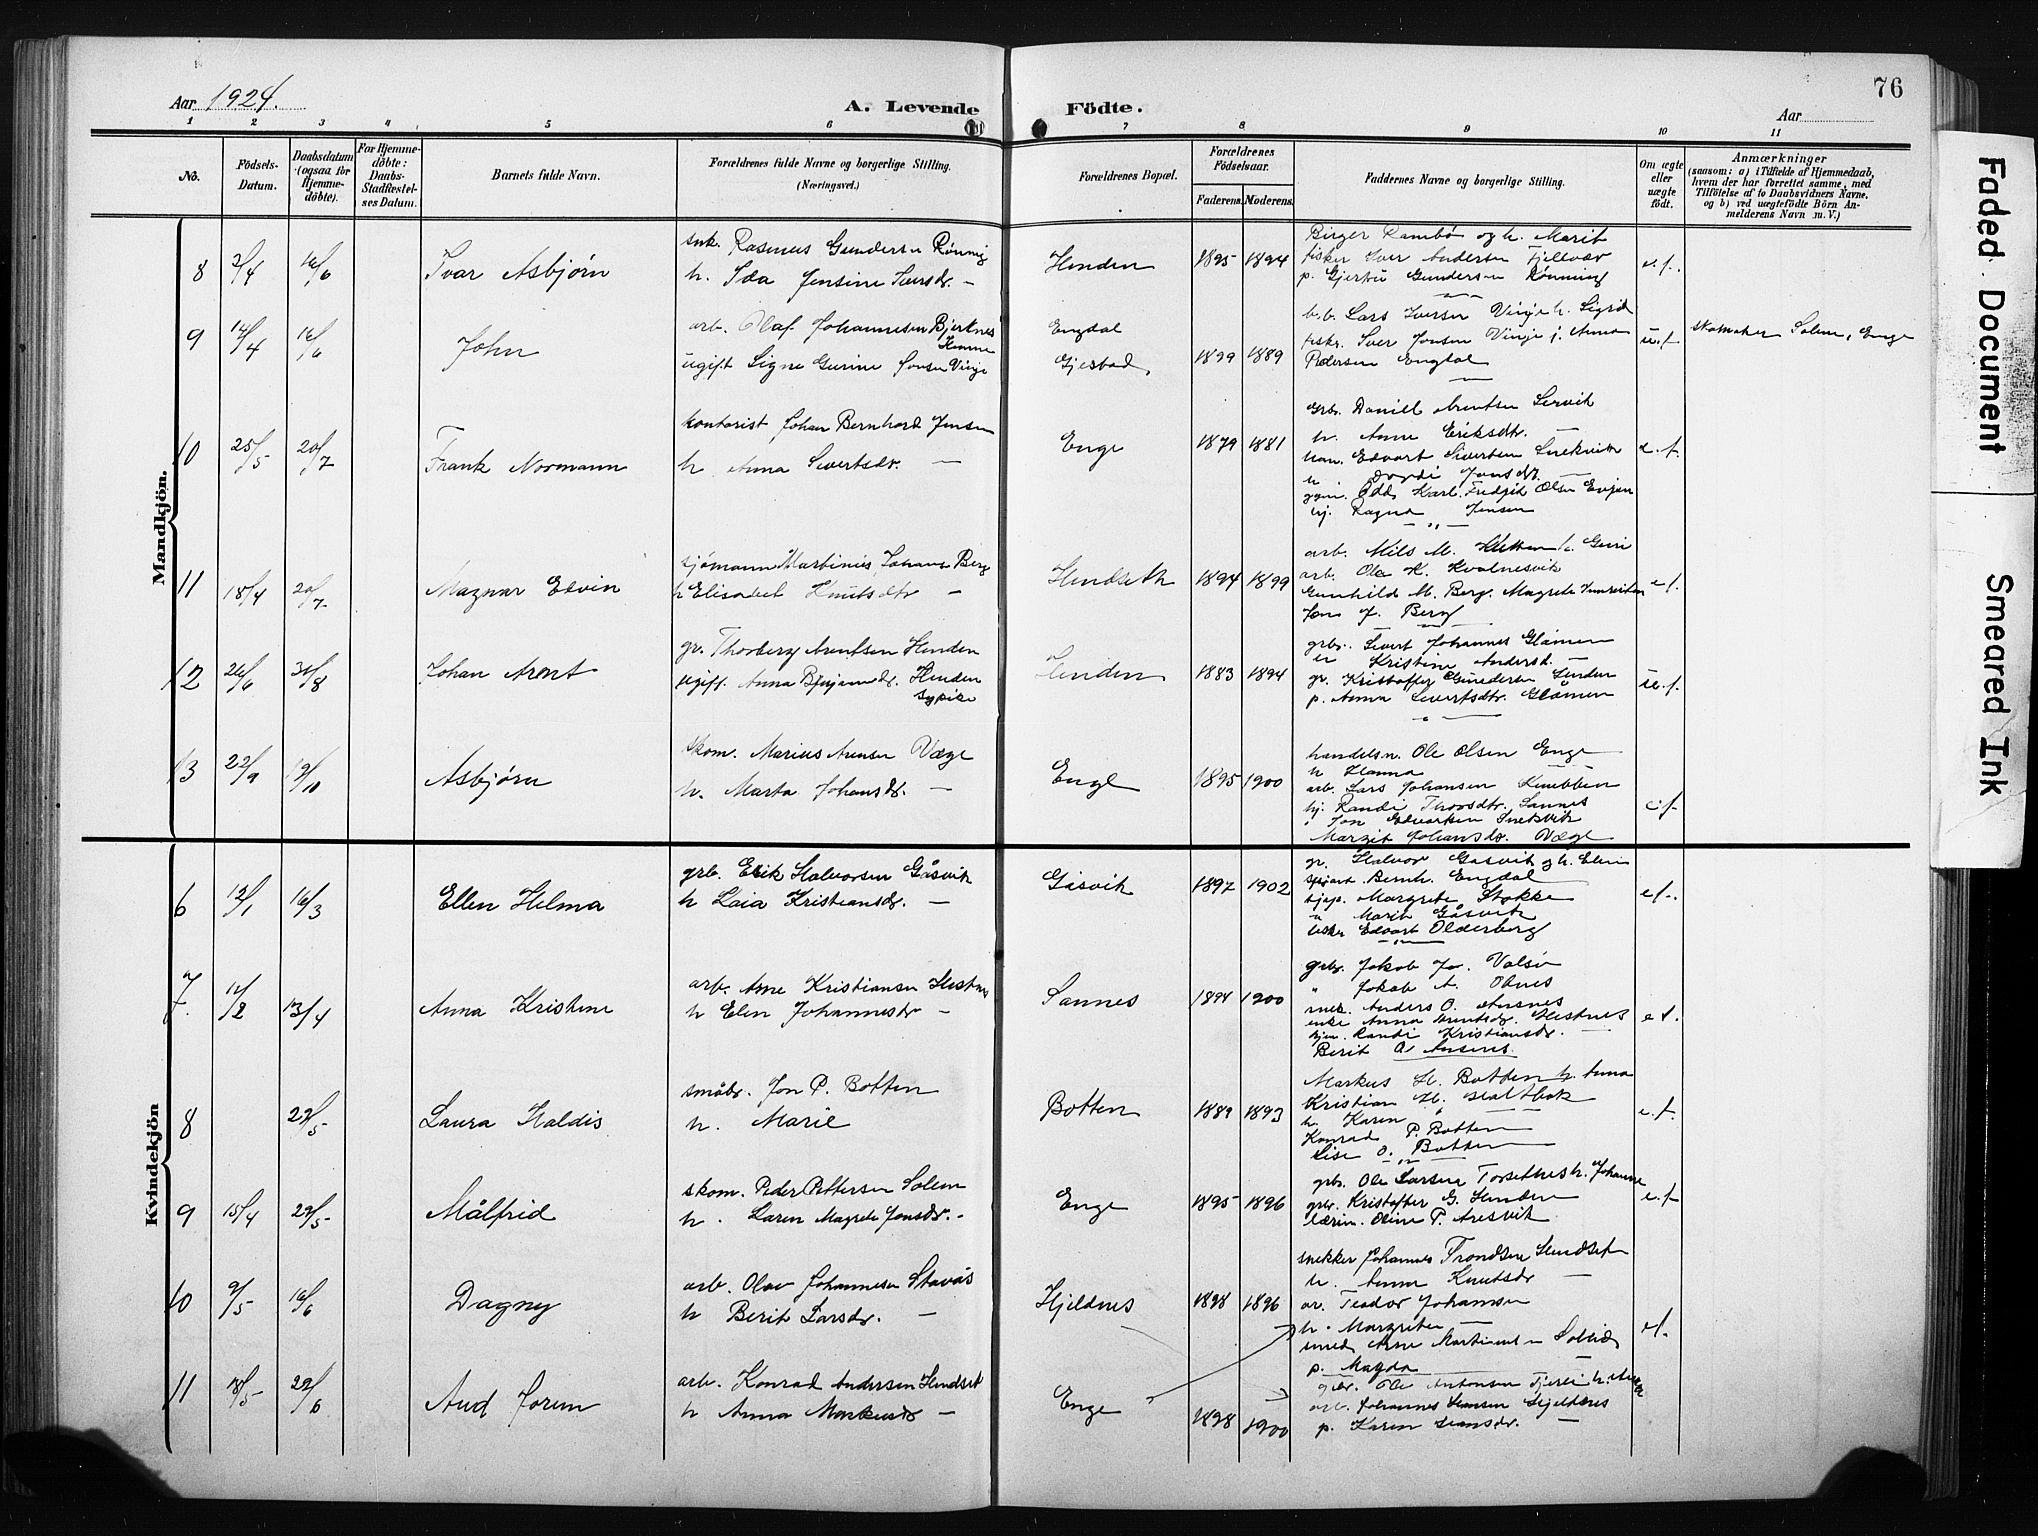 76
Aar 1924.
A. Levende Födte.
Aar
1 2 3 4 5 6 7 8 9 10 11
No.
Födsels-Datum.
Daabsdatum (ogsaa for Hjemmedöbte).
For Hjemmedöbte: Daabs-Stadfæstelses Datum.
Barnets fulde Navn.
Forældrenes fulde Navne og borgerlige Stilling. (Næringsvei.)
Forældrenes Bopæl.
Forældrenes Födselsaar.
Faderens. Moderens.
Faddernes Navne og borgerlige Stilling.
Om ægte eller uægte födt.
Anmærkninger (saasom: a) i Tilfælde af Hjemmedaab, hvem der har forrettet samme, med Tilföielse af to Daabsvidners Navne, og b) ved uægtefödte Börn Anmelderens Navn m.V.)
Mandkjön.
8 2/4 16/6 Ivar Asbjørn
snk. Rasmus Gundersen Rönnig
h. Ida Jensine Iversdr. —
Henden 1895 1894
Birger Rambö og h. Marit
fisker Iver Andersen Fjellvær
p. Gjertru Gundersen Rønning
e.f.
9 14/4 16/6 John
arb. Olaf Johannesen Bjerknes
Hemne
ugift Signe Gurine Jonsen Vinje
Engdal
Gjesbad, 1899 1889
b.b. Lars Iversen Vinje h. Sigrid
fiskr. Iver Jonsen Vinje j. Anna
Pedersen Engdal
u.f. skomaker Solem, Enge
10 25/5 20/7 Frank Normann
kontorist Johan Bernhard Jensen
h. Anna Sivertsdr. —
Enge 1879 1881
Grb. Daniel Arentsen Lervik
h. Anne Eriksdtr. —
han. Edvart Sivertsen Snekvik
h. Jonsdr. —
gym. Odd Karl Fredrik Olsen Evjen
hj. Ragna Jensen
e.f.
11 18/4 20/7 Magnar Edvin
sjømann Martinus Johansen Berg
h Elisabet Knutsdtr —
Hendseth 1894 1899
arb. Nils M. h. Guri
arb. Ole K. Kvalnesvik
Gunhild M. Berg. Magrete
Jens J. Berg
e.f.
12 26/6 31/8 Johan Arent
gr. Thorberg Arentsen Henden
ugift. Anna Henden
sypike
Henden 1883 1894
grb. Sivert Johannes Glåmen
h Kristine Andersd. —
gr. Kristoffer Gundersen Henden
p. Anna Sivertsdtr. Glåmen
u.f.
13 22/9 19/10 Asbjørn
skom. Marius Arensen Væge
h. Marta Johansdr. —
Enge 1895 1900
handelsm. Ole Olsen Enge
h Hanna —
arb. Lars Johansen Knubben
hj. Randi Thorsdtr. Sannes
Jon Edvartsen Snekvik
Margit Johansdr. Væge
e.f.
Kvindekjön
6 12/1 16/3 Ellen Helma
grb. Erik Halvorsen Gåsvik
h Laia Kristiansdr. —
Gåsvik 1897 1902
gr. Halvor Gåsvik og h. Elen
Bernh. Engdal
Margrete Stokke
" Marit Gåsvik
fisker Edvart Olderberg
e.f.
7. 11/2 13/4 Anna Kristine
arb. Arne Kristiansen Hestnes
h Elen Johannesdr —
Sannes 1894 1900
grb. Jakob Jo. Valsø
" Jakob A. Odnes
snek. Anders O. Aasnes
enke Anna Arentsdr. Hestnes
hjm. Randi Kristiansdr.
Berit O Aasnes
e.f.
8 22/5 Laura Haldis
småbr. Jon P. Botten
h. Marie
Botten 1889 1893
Markus H. Botten h. Anna
Kristian H.
h. Karen "
Konrad P. Botten
Lise O. Botten
e.f.
9 15/4 22/5 Målfrid
skom. Peder Pettersen Solem
h. Laren Magrete Jonsdr. —
Enge 1895 1896
grb. Ole Larsen Torsetnes h. Johanne
grbr. Kristoffer G. Henden
lærin. Oline P. Aresvik
e.f.
10 9/5 16/6 Dagny
arb. Olav Johannesen Stavås
h Berit Larsdr. —
Hjeldnes 1898 1896
snekker Johannes Trondsen Hendset
h. Anna Knutsdr —
ar. Teodor Johansen
h. Margrete —
smed Arne Martinsen Solvik
p. Magda —
e.f.
11 18/5 22/6 Aud Jorun
arb. Konrad Andersen Hendset
h Anna Markusdr —
Enge 1898 1900
gbr. Ole Antonsen Fjerli h. Anna
arb. Johannes Hansen Hjeldnes
p. Karen Hansdr. —
Faded Document
Smeared Ink